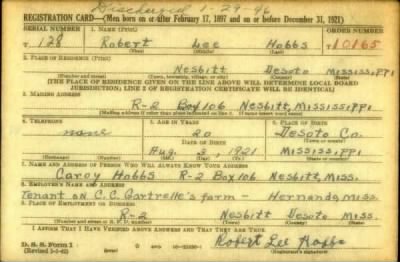 Discharged 1-29-46
REGISTRATION CARD—(Men born on or after February 17, 1897 and on or before December 31, 1921)
SERIAL NUMBER 1. NAME (Print) ORDER NUMBER
T 128 Robert Lee Hobbs 10165
(First) (Middle) (Last)
2. PLACE OF RESIDENCE (Print)
Nesbitt DeSoto Mississippi
(Number and street) (Town, township, village, or city) (County) (State)
(THE PLACE OF RESIDENCE GIVEN ON THE LINE ABOVE WILL DETERMINE LOCAL BOARD
JURISDICTION; LINE 2 OF REGISTRATION CERTIFICATE WILL BE IDENTICAL)
3. MAILING ADDRESS
R-2 Box 106 Nesbitt, Mississippi
(Mailing address if other than place indicated on line 2. If same insert word same)
4. TELEPHONE 5. AGE IN YEARS 6. PLACE OF BIRTH
none 20 DeSoto Co.
DATE OF BIRTH (Town or county)
Aug. 3, 1921 Mississippi
(Exchange) (Number) (Mo.) (Day) (Yr.) (State or country)
7. NAME AND ADDRESS OF PERSON WHO WILL ALWAYS KNOW YOUR ADDRESS
Hobbs R-2 Box 106 Nesbitt, Miss.
8. EMPLOYER'S NAME AND ADDRESS
Tenant on C.C. Gartrelle's farm - Hernando, Miss.
9. PLACE OF EMPLOYMENT OR BUSINESS
R-2 Nesbitt DeSoto Miss.
(Number and street or R. F. D. number) (Town) (County) (State)
I AFFIRM THAT I HAVE VERIFIED ABOVE ANSWERS AND THAT THEY ARE TRUE.
D. S. S. Form 1
Robert Lee Hobbs
(Registrant's signature)